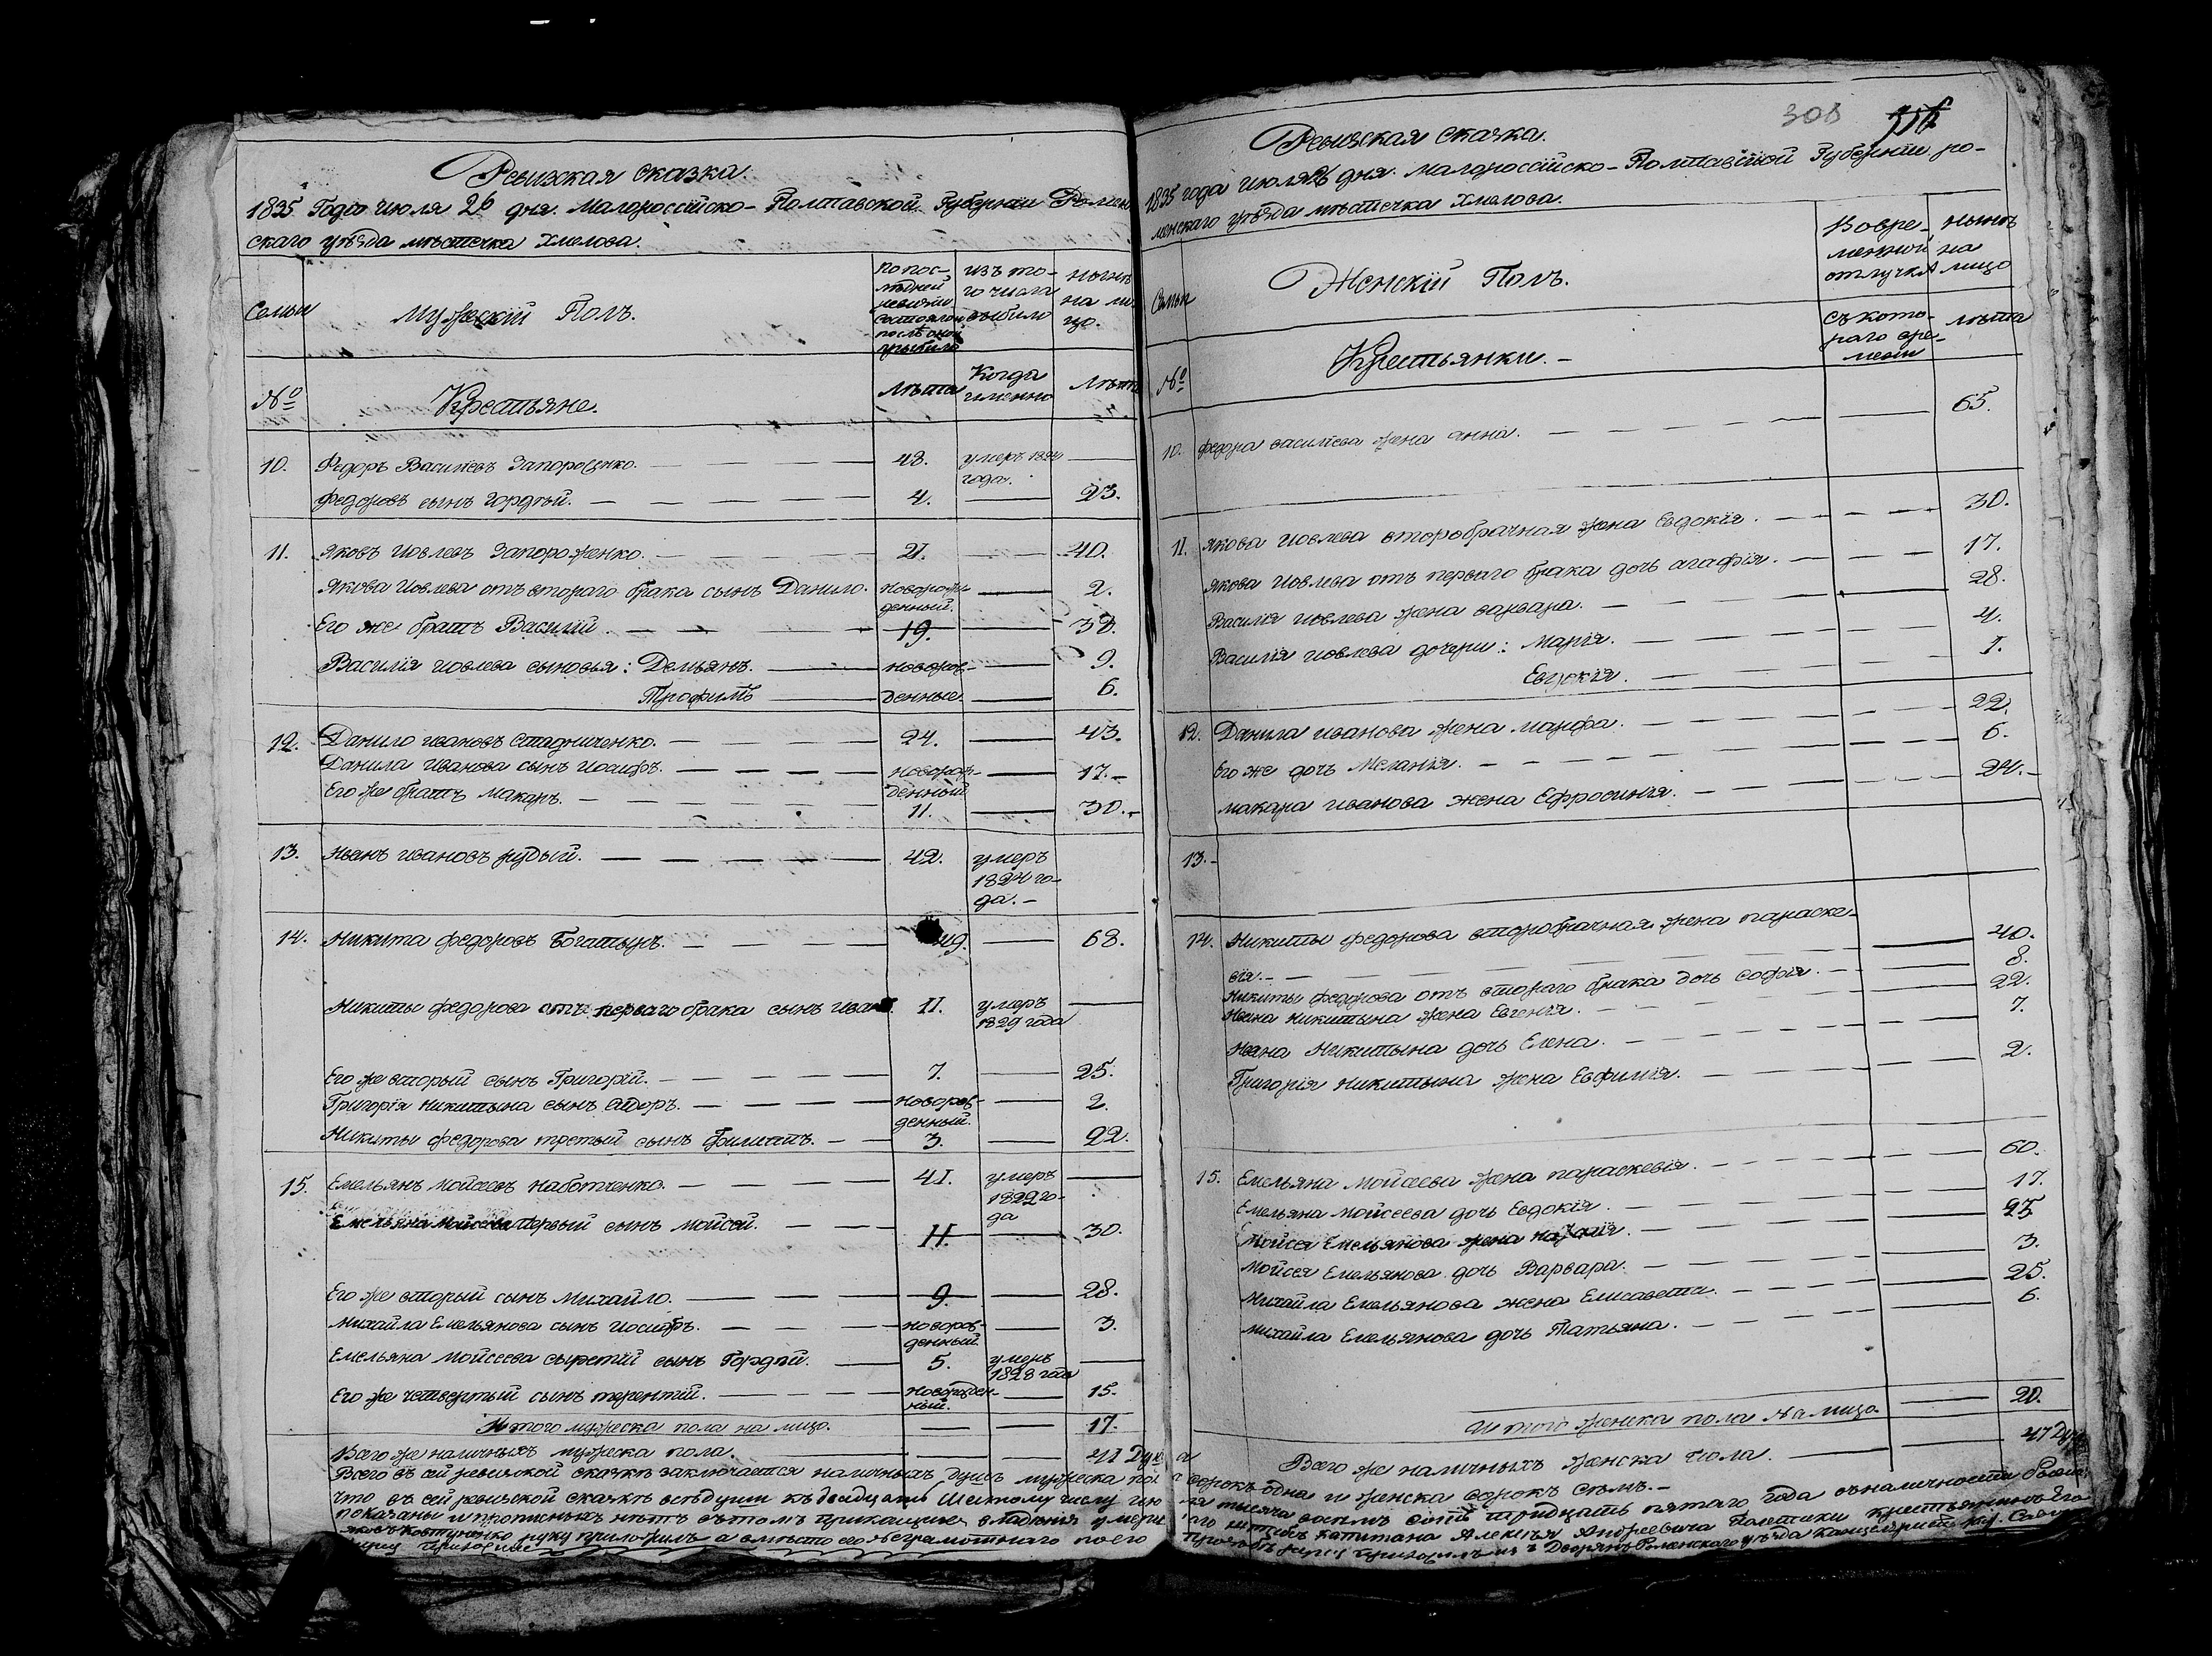 Ревизская сказка.
1835 Года июля 26 дня. Малороссійско-Полтавской Губерніи Ромен
скаго уѣзда мѣстечка Хмелова.
Семьи
Мужескій Полъ.
По пос-
лѣдней
ревизіи
состояло и
послѣ оной
прибыло
изъ то-
го числа
выбыло
Нынѣ
на ли
цо.
№
Крестьяне.
Лѣта
Когда
именно
Лѣта
10. Федоръ Васильевъ Запороженко. 48. умеръ 1824
года.
Федоровъ сынъ Гордѣй. 4. 23.
11. Яковъ Иовлевъ Запороженко. 21. 40.
Якова Иовлева отъ втораго брака сынъ Данило. новорож-
денный. 2.
Его же братъ Василій. 19. 38.
Василія Иовлева сыновья: Демьянъ. новорож- 9.
Трофимъ денные. 6.
12. Данило Ивановъ Стадниченко. 24. 43.
Данила Иванова сынъ Иосифъ. новорож-
денный 17.
Его же братъ Макаръ. 11. 30.
13. Иванъ Ивановъ Рудый. 42. умеръ
1824 го-
да.
14. Никита Федоровъ Богатырь. 49. 68.
Никиты Федорова отъ перваго брака сынъ Иванъ. 11. умеръ
1829 года
Его же вторый сынъ Григорій. 7. 25.
Григорія Никитина сынъ новорож-
денный. 2.
Никиты Федорова третый сынъ Филипъ. 3. 22.
15. Емельянъ Мойсеевъ Наботченко. 41. умеръ
1822 го-
да
Емельяна Мойсеева первый сынъ Мойсей. 11. 30.
Его же вторый сынъ Михайло. 9. 28.
Михайла Емельянова сынъ Иосифъ. новорож-
денный. 3.
Емельяна Мойсеева третій сынъ Гордѣй. 5. умеръ
1828 года
Его же четвертый сынъ Терентій. новорожден-
ный. 15.
Итого мужеска пола на лицо. 17.
Всего же наличныхъ мужеска пола. 41 Душ
308
Ревизская Сказка.
1835 года июля 26 дня. Малороссійско-Полтавской Губерніи Ро-
менскаго уѣзда мѣстечка Хмелова.
Семьи
Женскій Полъ.
Во вре-
менной
отлучкѣ
Нынѣ
на
лицо
№
Крестьянки.
Съ кото-
раго вре-
мени
Лѣта
10. Федора Васильева жена Анна. 65.
11. Якова Иовлева второбрачная жена Евдокія. 30.
Якова Иовлева отъ перваго брака дочь Агафія. 17.
Василія Иовлева жена Варвара. 28.
Василія Иовлева дочери: Марія. 4.
Евдокія. 1.
12. Данила Иванова жена Марфа. 22.
Его же дочь Меланія. 6.
Макара Иванова жена Ефросинія. 24.
13.
14. Никиты Федорова второбрачная жена Параске-
вія. 40.
Никиты Федорова отъ втораго брака дочь Софія. 8.
Ивана Никитина жена Евгенія. 22.
Ивана Никитина дочь Елена. 7.
Григорія Никитина жена Евфимія. 2.
15. Емельяна Мойсеева жена Параскевія. 60.
Емельяна Мойсеева дочь Евдокія. 17.
Мойсея Емельянова жена Наталія. 25
Мойсея Емельянова дочь Варвара. 3.
Михайла Емельянова жена Елисавета. 25.
Михайла Емельянова дочь Татьяна. 6.
Итого женска пола на лицо. 20.
Всего же наличныхъ женска пола. 47 Душ
Всего въ сей ревизской сказкѣ заключается наличныхъ душъ мужеска пола сорокъ одна и женска сорокъ семь.
что въ сей ревизской сказкѣ къ двадцать шестому числу тысяча восемь сотъ тридцать пятаго года
показаны и прописныхъ нѣтъ въ томъ капитана Алексѣя Андреевича Полетики
руку приложилъ а вмѣсто его неграмотнаго по его